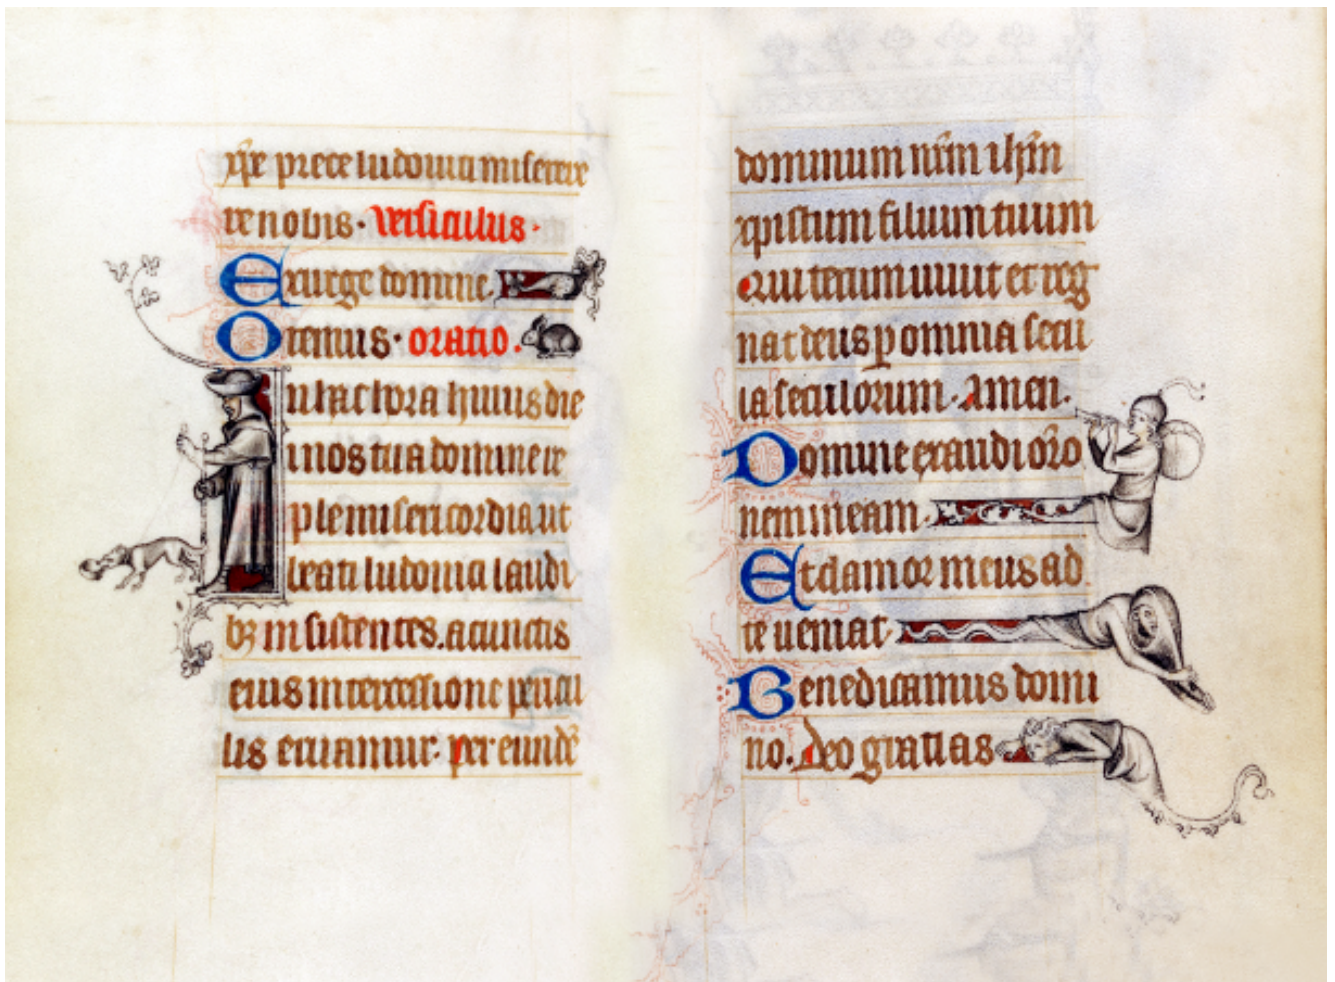 xp̄e prece ludouici miserere
re nobis. versiculus.
Exurge domine.
Oremus. oratio.
In hac hora huius die
i nos tua domine re
ple misericordia ut
beati ludouici laudi
bꝫ insistentes. a cunctis
eius intercessione pericu
lis eruamur. per eundē
dominum nr̄m ihm̄
xpistum filium tuum
Qui tecum uiuit et reg
nat deus ꝑ omnia secu
la seculorum. Amen.
Domine exaudi or̄o
nem meam.
Et clamor meus ad
te ueniat.
Benedicamus domi
no. Deo gratias